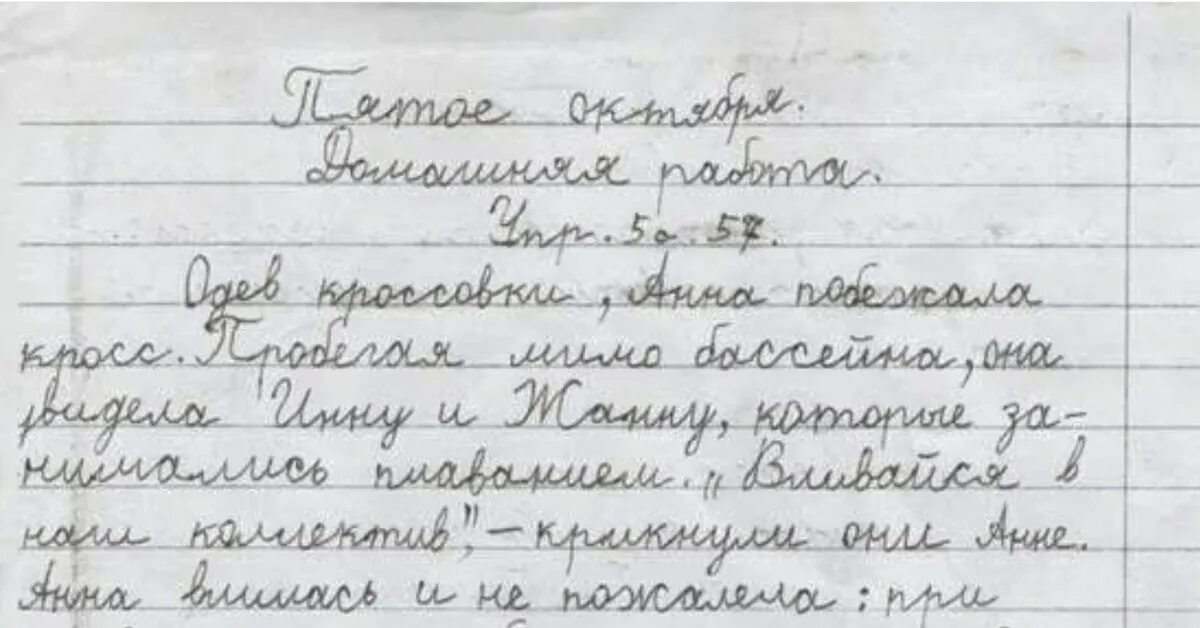 Пятое октября.
Домашняя работа.
Упр. 5а. 57.
Одев кроссовки, Анна побежала
кросс. Пробегая мимо бассейна, она
увидела Инну и Жанну, которые за-
нимались плаванием. „Вливайся в
наш коллектив", – крикнули они Анне.
Анна влилась и не пожалела: при